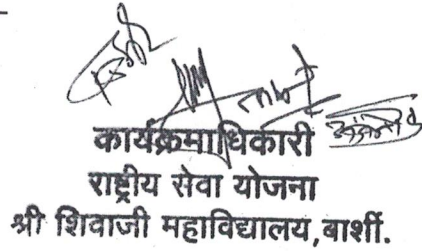 कार्यक्रमाधिकारी
राष्ट्रीय सेवा योजना
श्री शिवाजी महाविद्यालय,बार्शी.